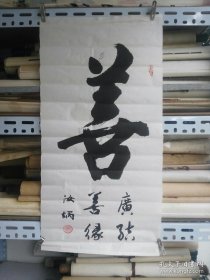 善
廣結
善緣
汝炳